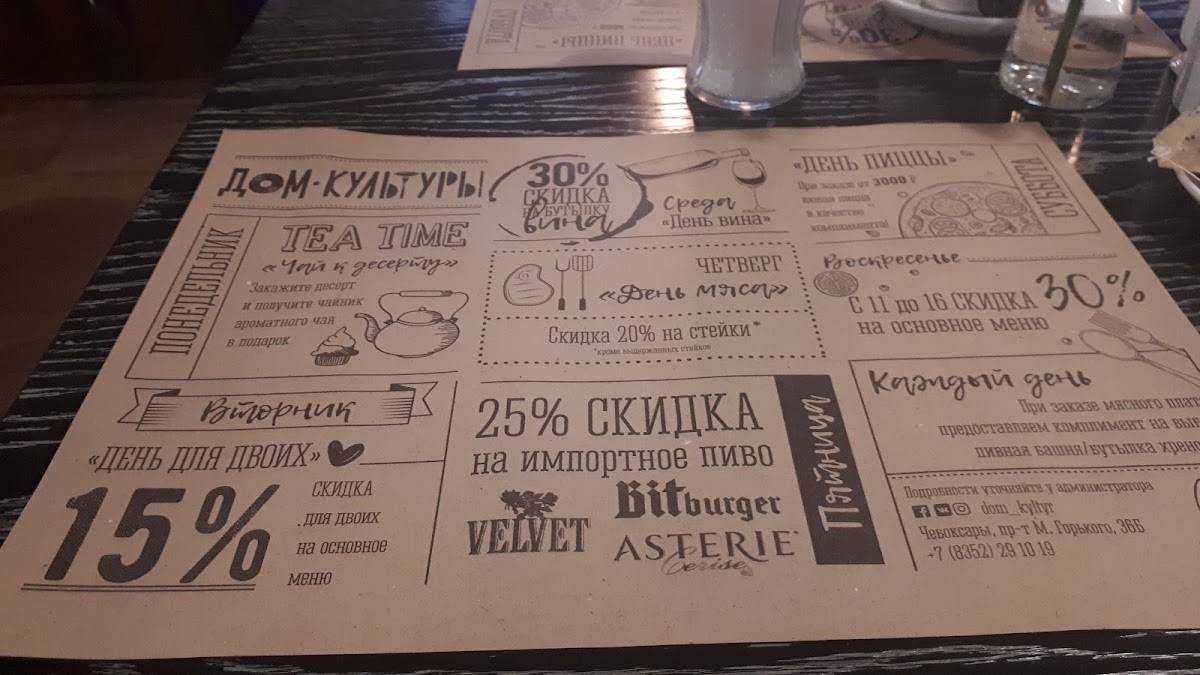 ДОМ•КУЛЬТУРЫ
ПОНЕДЕЛЬНИК
TEA TIME
«Чай к десерту»
Закажите десерт
и получите чайник
ароматного чая
в подарок
Вторник
«ДЕНЬ ДЛЯ ДВОИХ»
15%
СКИДКА
для двоих
на основное
меню
30%
СКИДКА
НА БУТЫЛКУ
вина
Среда
«День вина»
ЧЕТВЕРГ
«День мяса»
Скидка 20% на стейки*
*кроме выдержанных стейков
25% СКИДКА
на импортное пиво
VELVET
Bitburger
ASTERIE
Cerise
Пятница
«ДЕНЬ ПИЦЦЫ»
СУББОТА
При заказе от 3000 ₽
любая пицца
в качестве
комплимента!
Воскресенье
С 11 до 16 СКИДКА 30%
на основное меню
Каждый день
При заказе мясного
предоставляем комплимент на
пивная башня/бутылка
Подробности уточняйте у администратора
dom_kyltyr
Чебоксары, пр-т М. Горького, 36Б
+7 (8352) 29 10 19
«ДЕНЬ ПИЦЦЫ»
СУББОТА
30%